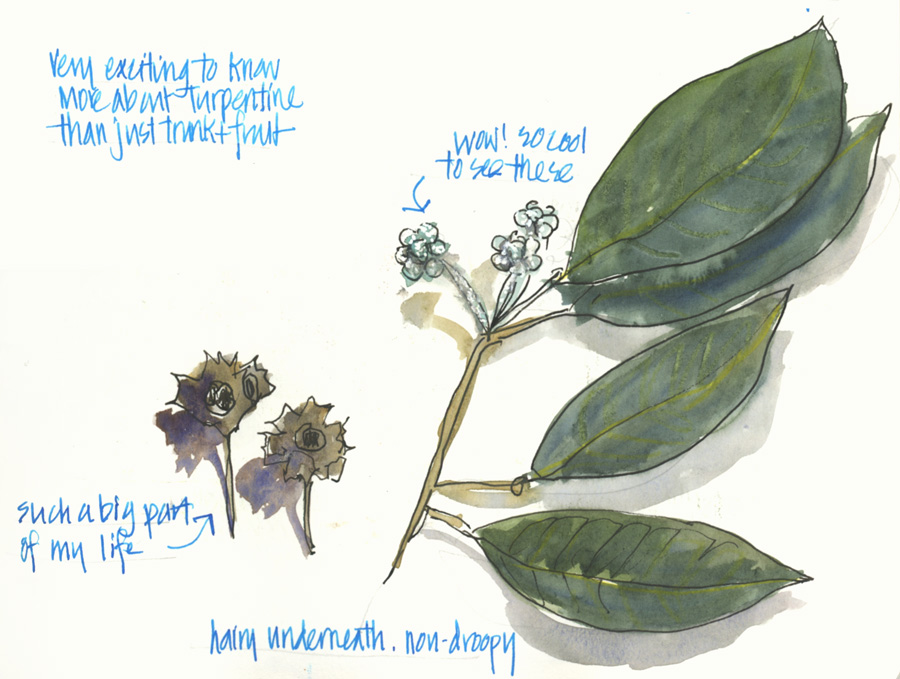 very exciting to know
more about turpentine
than just trunk + fruit
wow! so cool
to see these
such a big part
of my life
hairy underneath. non-droopy